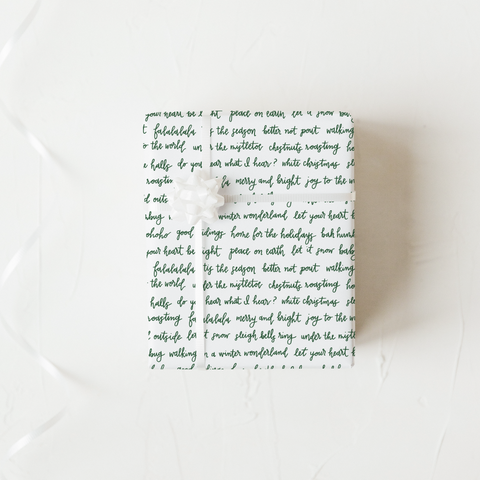 your heart be ght peace on earth let it snow bab
t falalalala is the season better not pout walking
o the world un r the mistletoe chestnuts roasting ho
e halls do yo ear what I hear? white christmas sle
roasting fa merry and bright joy to the w
bug winter wonderland let your heart b
ohoho good idings home for the holidays bah humb
your heart be ight peace on earth let it snow baby
falalalala tis the season better not pout walking
the world u r the mistletoe chestnuts roasting ho
halls do yo hear what I hear? white christmas sle
roasting fa lalalala merry and bright joy to the w
outside let snow sleigh bells ring under the mistlet
bug walking n a winter wonderland let your heart b